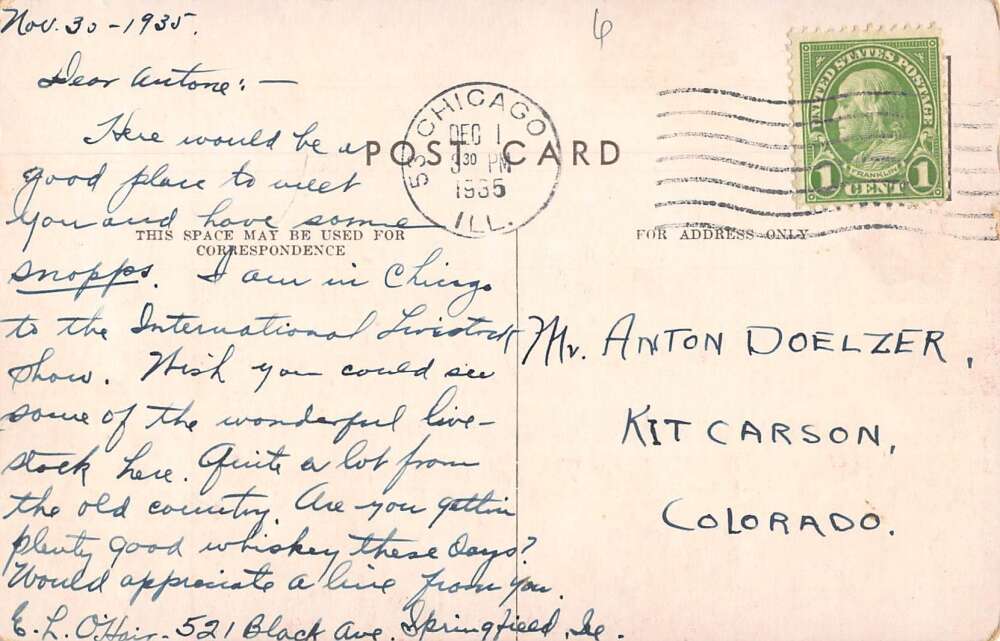 Nov. 30 - 1935.
6
Dear Antone: —
Here would be a
good place to meet
you and have some
snopps. I am in Chicago
to the International Livestock
Show. Wish you could see
some of the wonderful live-
stock here. Quite a lot from
the old country. Are you gettin
plenty good whiskey these days?
Would appreciate a line from you.
E. L. O'Hair - 521 Black Ave. Springfield, Ill.
POST CARD
THIS SPACE MAY BE USED FOR
CORRESPONDENCE
FOR ADDRESS ONLY
CHICAGO
53
DEC 1
30 PM
1935
ILL.
UNITED STATES POSTAGE
FRANKLIN
1 CENT 1
Mr. ANTON DOELZER,
KIT CARSON,
COLORADO.